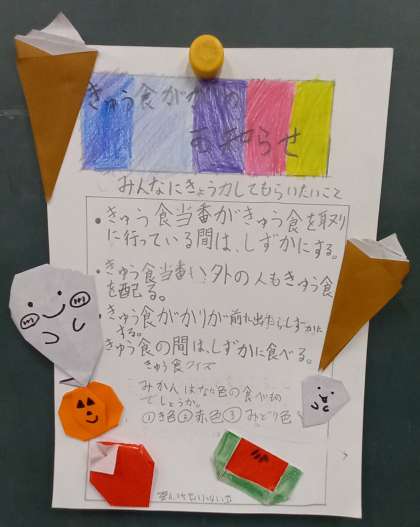 きゅう食がかりの
お知らせ
みんなにきょう力してもらいたいこと
・きゅう食当番がきゅう食を取り
に行っている間は、しずかにする。
・きゅう食当番い外の人もきゅう食
を配る。
・きゅう食がかりが前に出たらしずかに
する。
きゅう食の間は、しずかに食べる。
きゅう食クイズ
みかんはなに色の食べ物
でしょうか。
①き色②赤色③みどり色